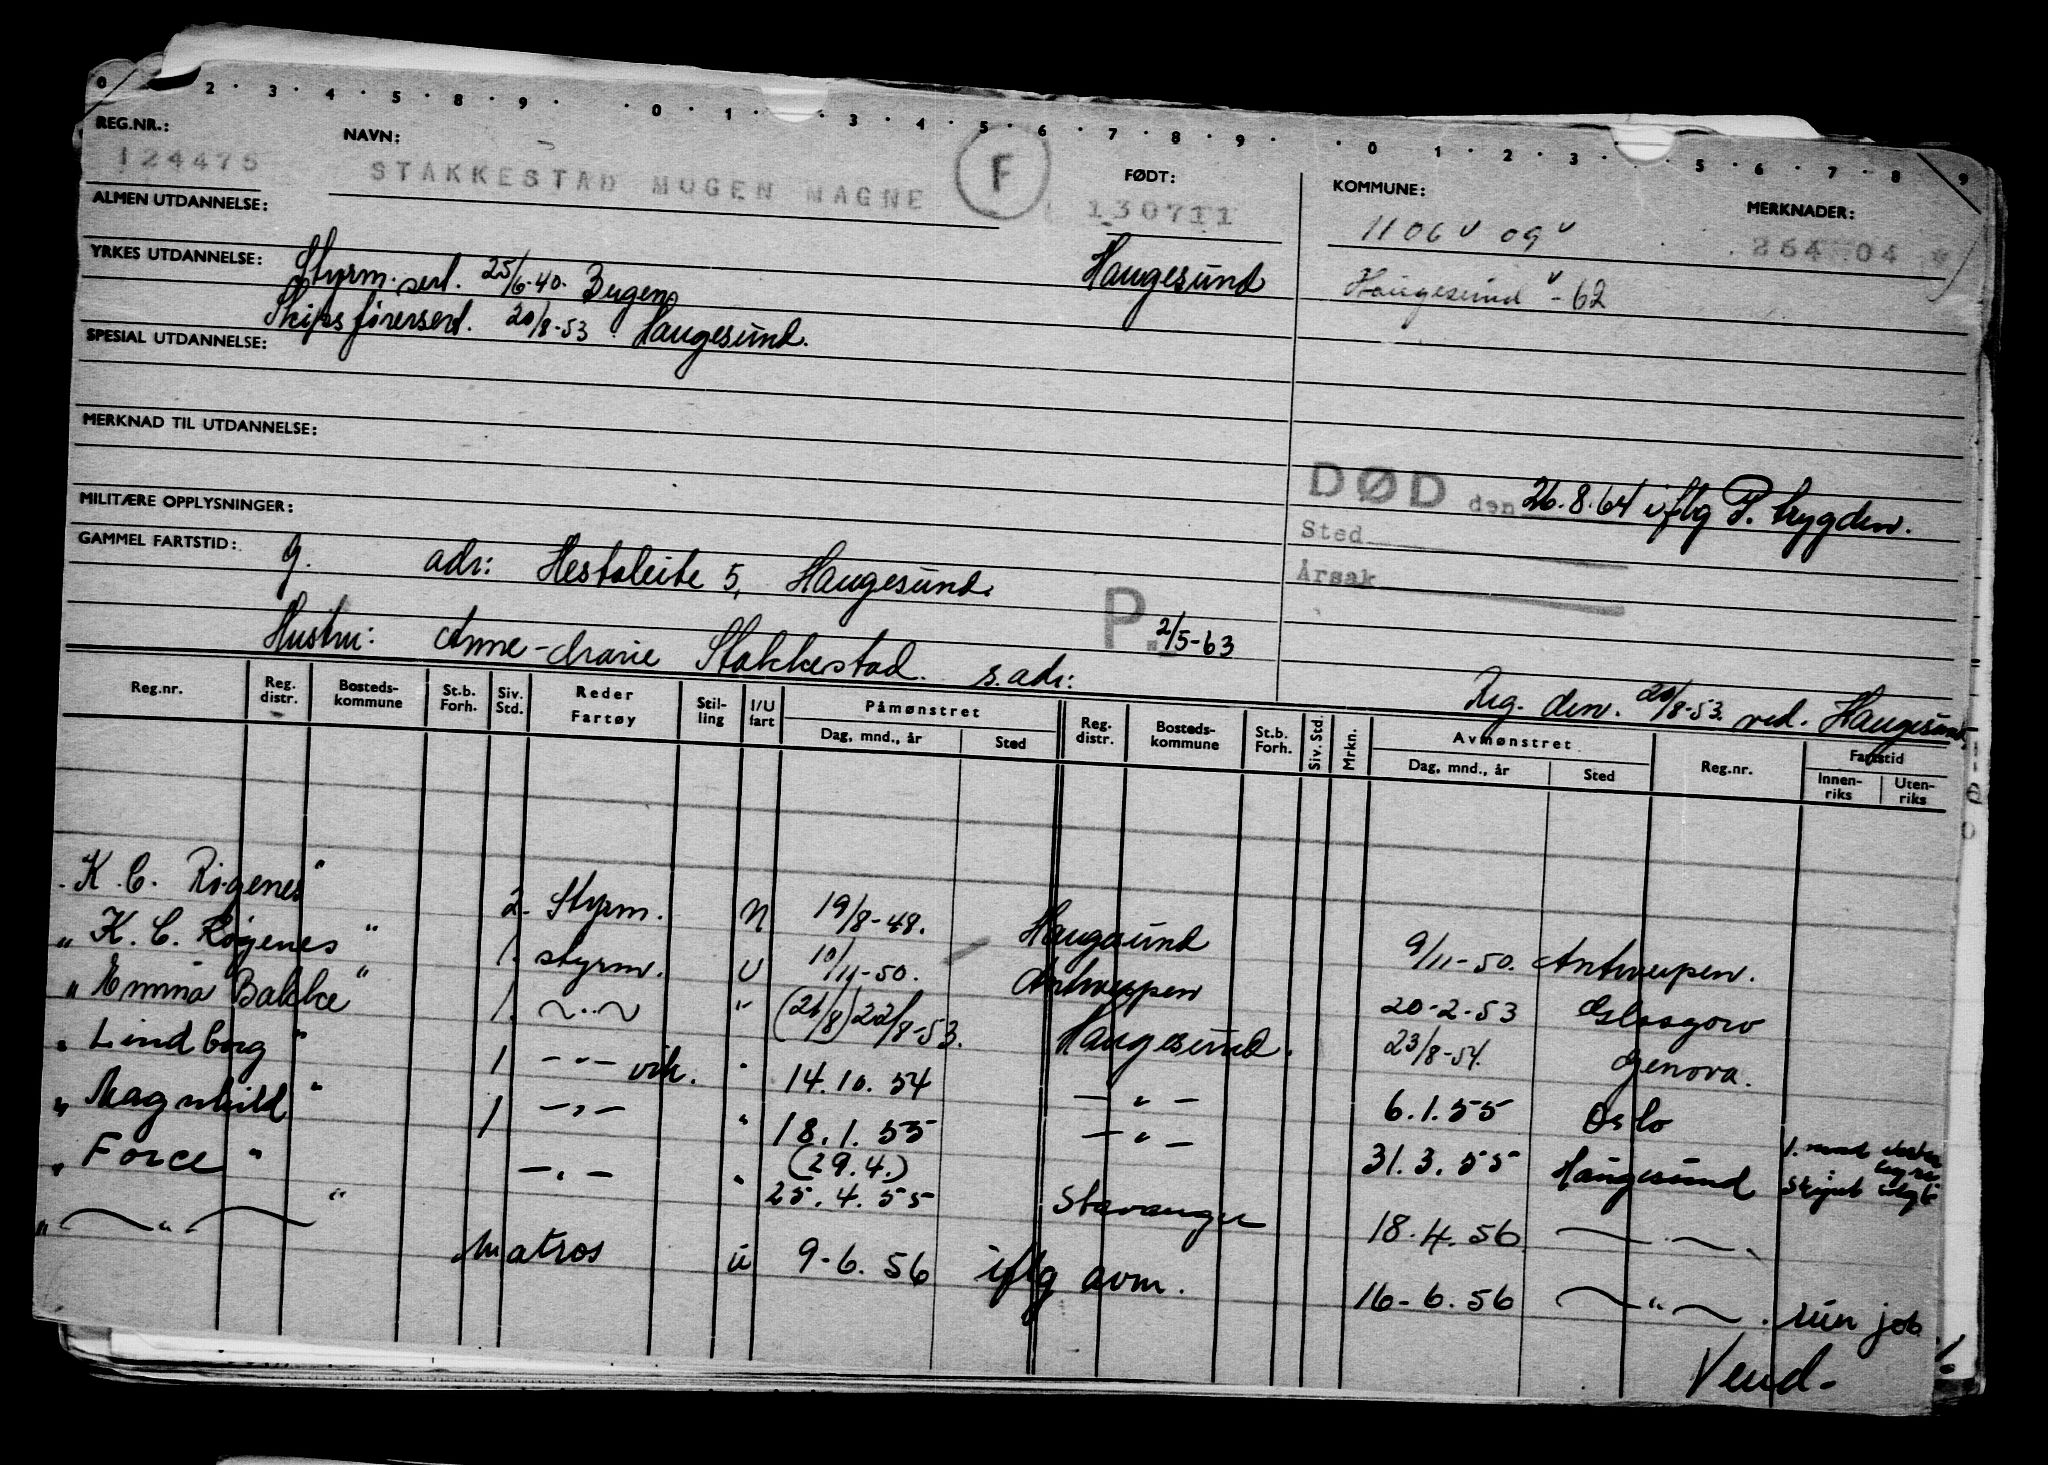 0 2 · 3 · 4 · 5 · 8 · 9 · · 0 · 1 · · 3 · 4 · 5 · 6 · 7 · 8 · 9 · · 0 · 1 · 2 · 3 · · 5 · 6 · 7 · 8 9
REG.NR.: NAVN: FØDT: KOMMUNE: MERKNADER:
124475 STAKKESTAD MOGEN MAGNE F 130711 1106 09 264 04
ALMEN UTDANNELSE:
YRKES UTDANNELSE: Styrm. sert. 25/6-40. Bergen Haugesund Haugesund -62
Skipsførersert. 20/8-53 Haugesund.
SPESIAL UTDANNELSE:
MERKNAD TIL UTDANNELSE:
MILITÆRE OPPLYSNINGER: DØD den 26.8.64 iflg P. trygden.
Sted
GAMMEL FARTSTID: g. adr: Hestaleite 5, Haugesund.
Årsak
P. 2/5-63
Hustru: Anne-Marie Stakkestad. s. adr:
Reg. den. 20/8-53. ved. Haugesund.
Reg.nr. Reg. distr. Bosteds-kommune St.b. Forh. Siv. Std. Reder Fartøy Stil-ling I/U fart Påmønstret Dag, mnd., år Sted Reg. distr. Bosteds-kommune St.b. Forh. Siv. Std. Mrkn. Avmønstret Dag, mnd., år Sted Reg.nr. Fartstid Innen-riks Uten-riks
K. C. Rogenes" 2. Styrm. N 19/8-48. Haugesund 9/11-50. Antwerpen.
" K. C. Rogenes " 1. styrm. U 10/11-50. Antwerpen 20-2-53 Glasgow
" Emma Bakke " 1. ~ " ~ " (21/8) 22/8-53. Haugesund. 23/8-54. Genova.
" Lindborg " 1 — " — vik. " 14.10.54 — " — 6.1.55 Oslo
" Magnhild " 1 — " — " 18.1.55 — " — 31.3.55 Haugesund
(29.4.)
" Force " — " — " 25.4.55 Stavanger 18.4.56 ~ " ~
" ~ " ~ " Matros u 9-6.56 iflg avm. 16-6.56 ~ " ~ . run job
Vend-